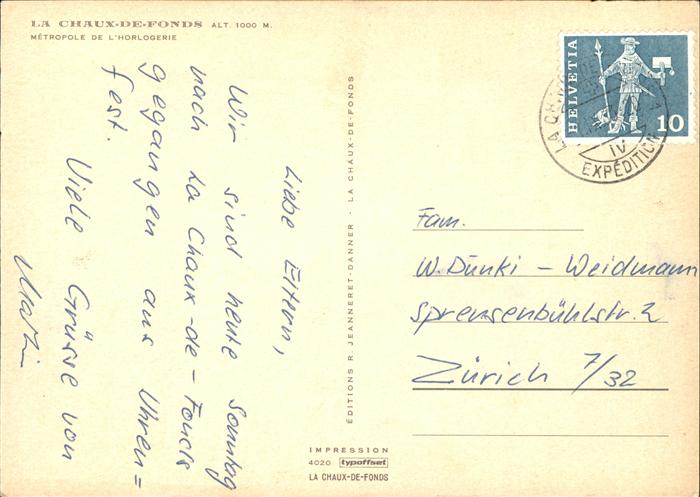 LA CHAUX-DE-FONDS ALT. 1000 M.
MÉTROPOLE DE L'HORLOGERIE
Liebe Eltern,
Wir sind heute Sonntag
nach La Chaux-de-Fonds
gegangen aus Uhren=
fest.
Viele Grüsse von
ÉDITIONS R. JEANNERET-DANNER - LA CHAUX-DE-FONDS
IMPRESSION
4020 typoffset
LA CHAUX-DE-FONDS
HELVETIA
10
IV
EXPÉDITION
Fam.
W. Dünki - Weidmann
Sprensenbühlstr. 2
Zürich 7/32